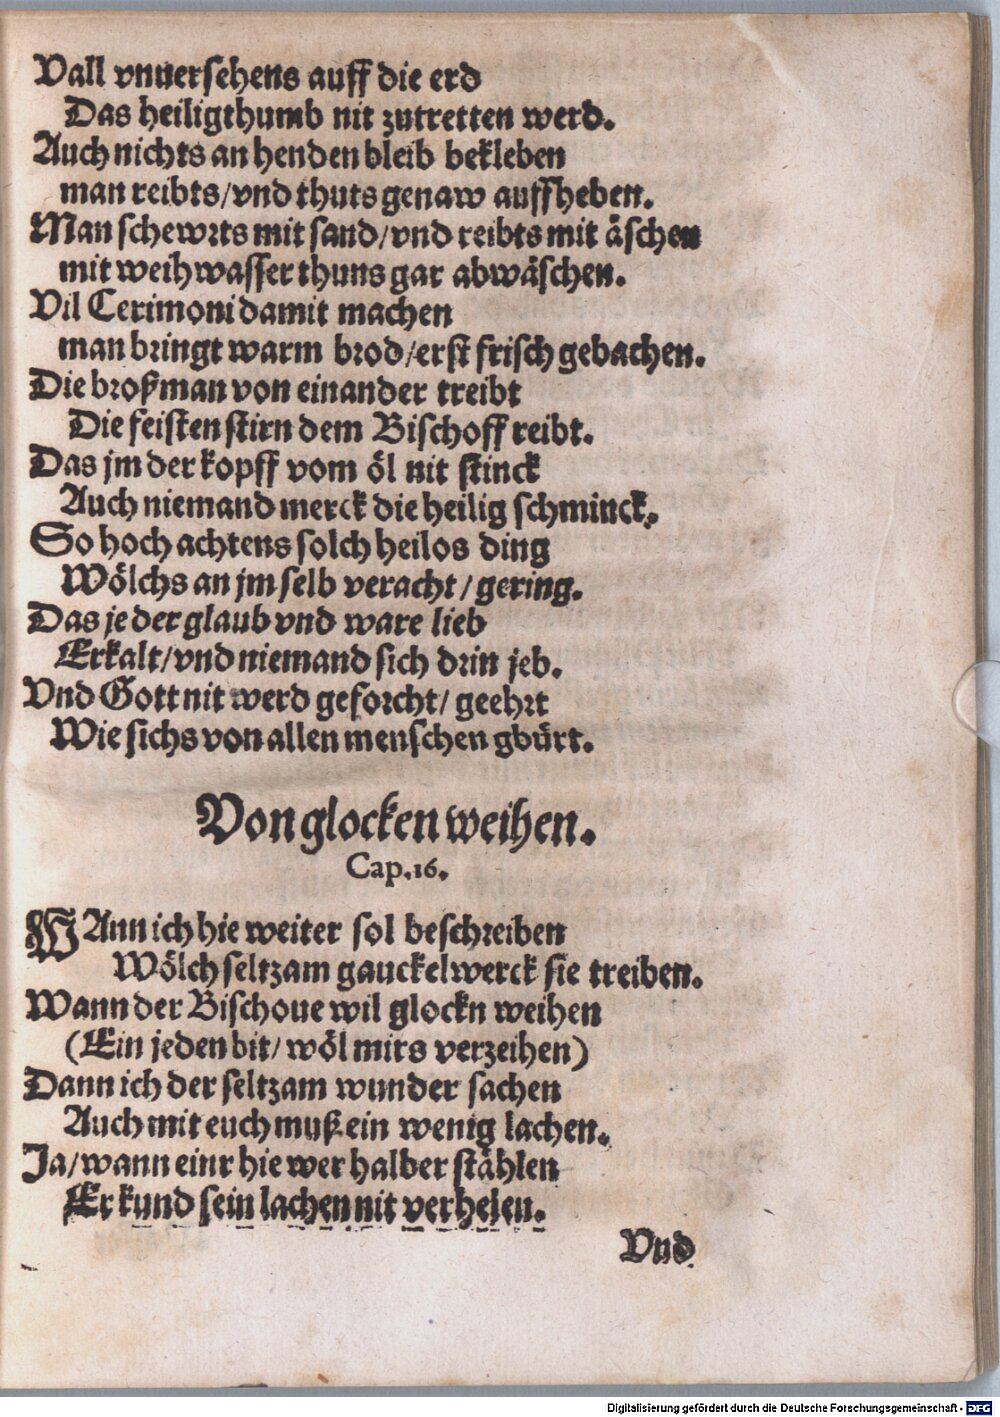 Vall vnuersehens auff die erd
Das heiligthumb nit zutretten werd.
Auch nichts an henden bleib bekleben
man reibts/vnd thuts genaw auffheben.
Man schewrts mit sand/vnd reibts mit äschen
mit weihwasser thuns gar abwäschen.
Vil Cerimoni damit machen
man bringt warm brod/erst frisch gebachen.
Die broßman von einander treibt
Die feisten stirn dem Bischoff reibt.
Das jm der kopff vom öl nit stinck
Auch niemand merck die heilig schminck.
So hoch achtens solch heilos ding
Wölchs an jm selb veracht/gering.
Das je der glaub vnd ware lieb
Erkalt/vnd niemand sich drin jeb.
Vnd Gott nit werd geforcht/geehrt
Wie sichs von allen menschen gbürt.
Von glocken weihen.
Cap.16.
WAnn ich hie weiter sol beschreiben
Wölch seltzam gauckelwerck sie treiben.
Wann der Bischoue wil glockn weihen
(Ein jeden bit/wöl mirs verzeihen)
Dann ich der seltzam wunder sachen
Auch mit euch muß ein wenig lachen.
Ja/wann einr hie wer halber stählen
Er kund sein lachen nit verhelen.
Vnd
Digitalisierung gefördert durch die Deutsche Forschungsgemeinschaft - DFG